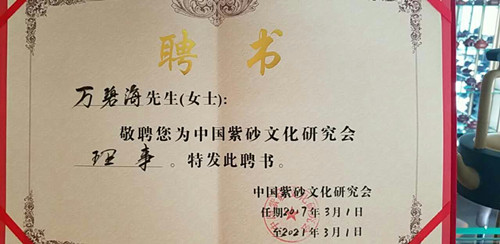 聘书
万碧海先生(女士):
敬聘您为中国紫砂文化研究会
理事。特发此聘书。
中国紫砂文化研究会
任期2017年3月1日
至2021年3月1日